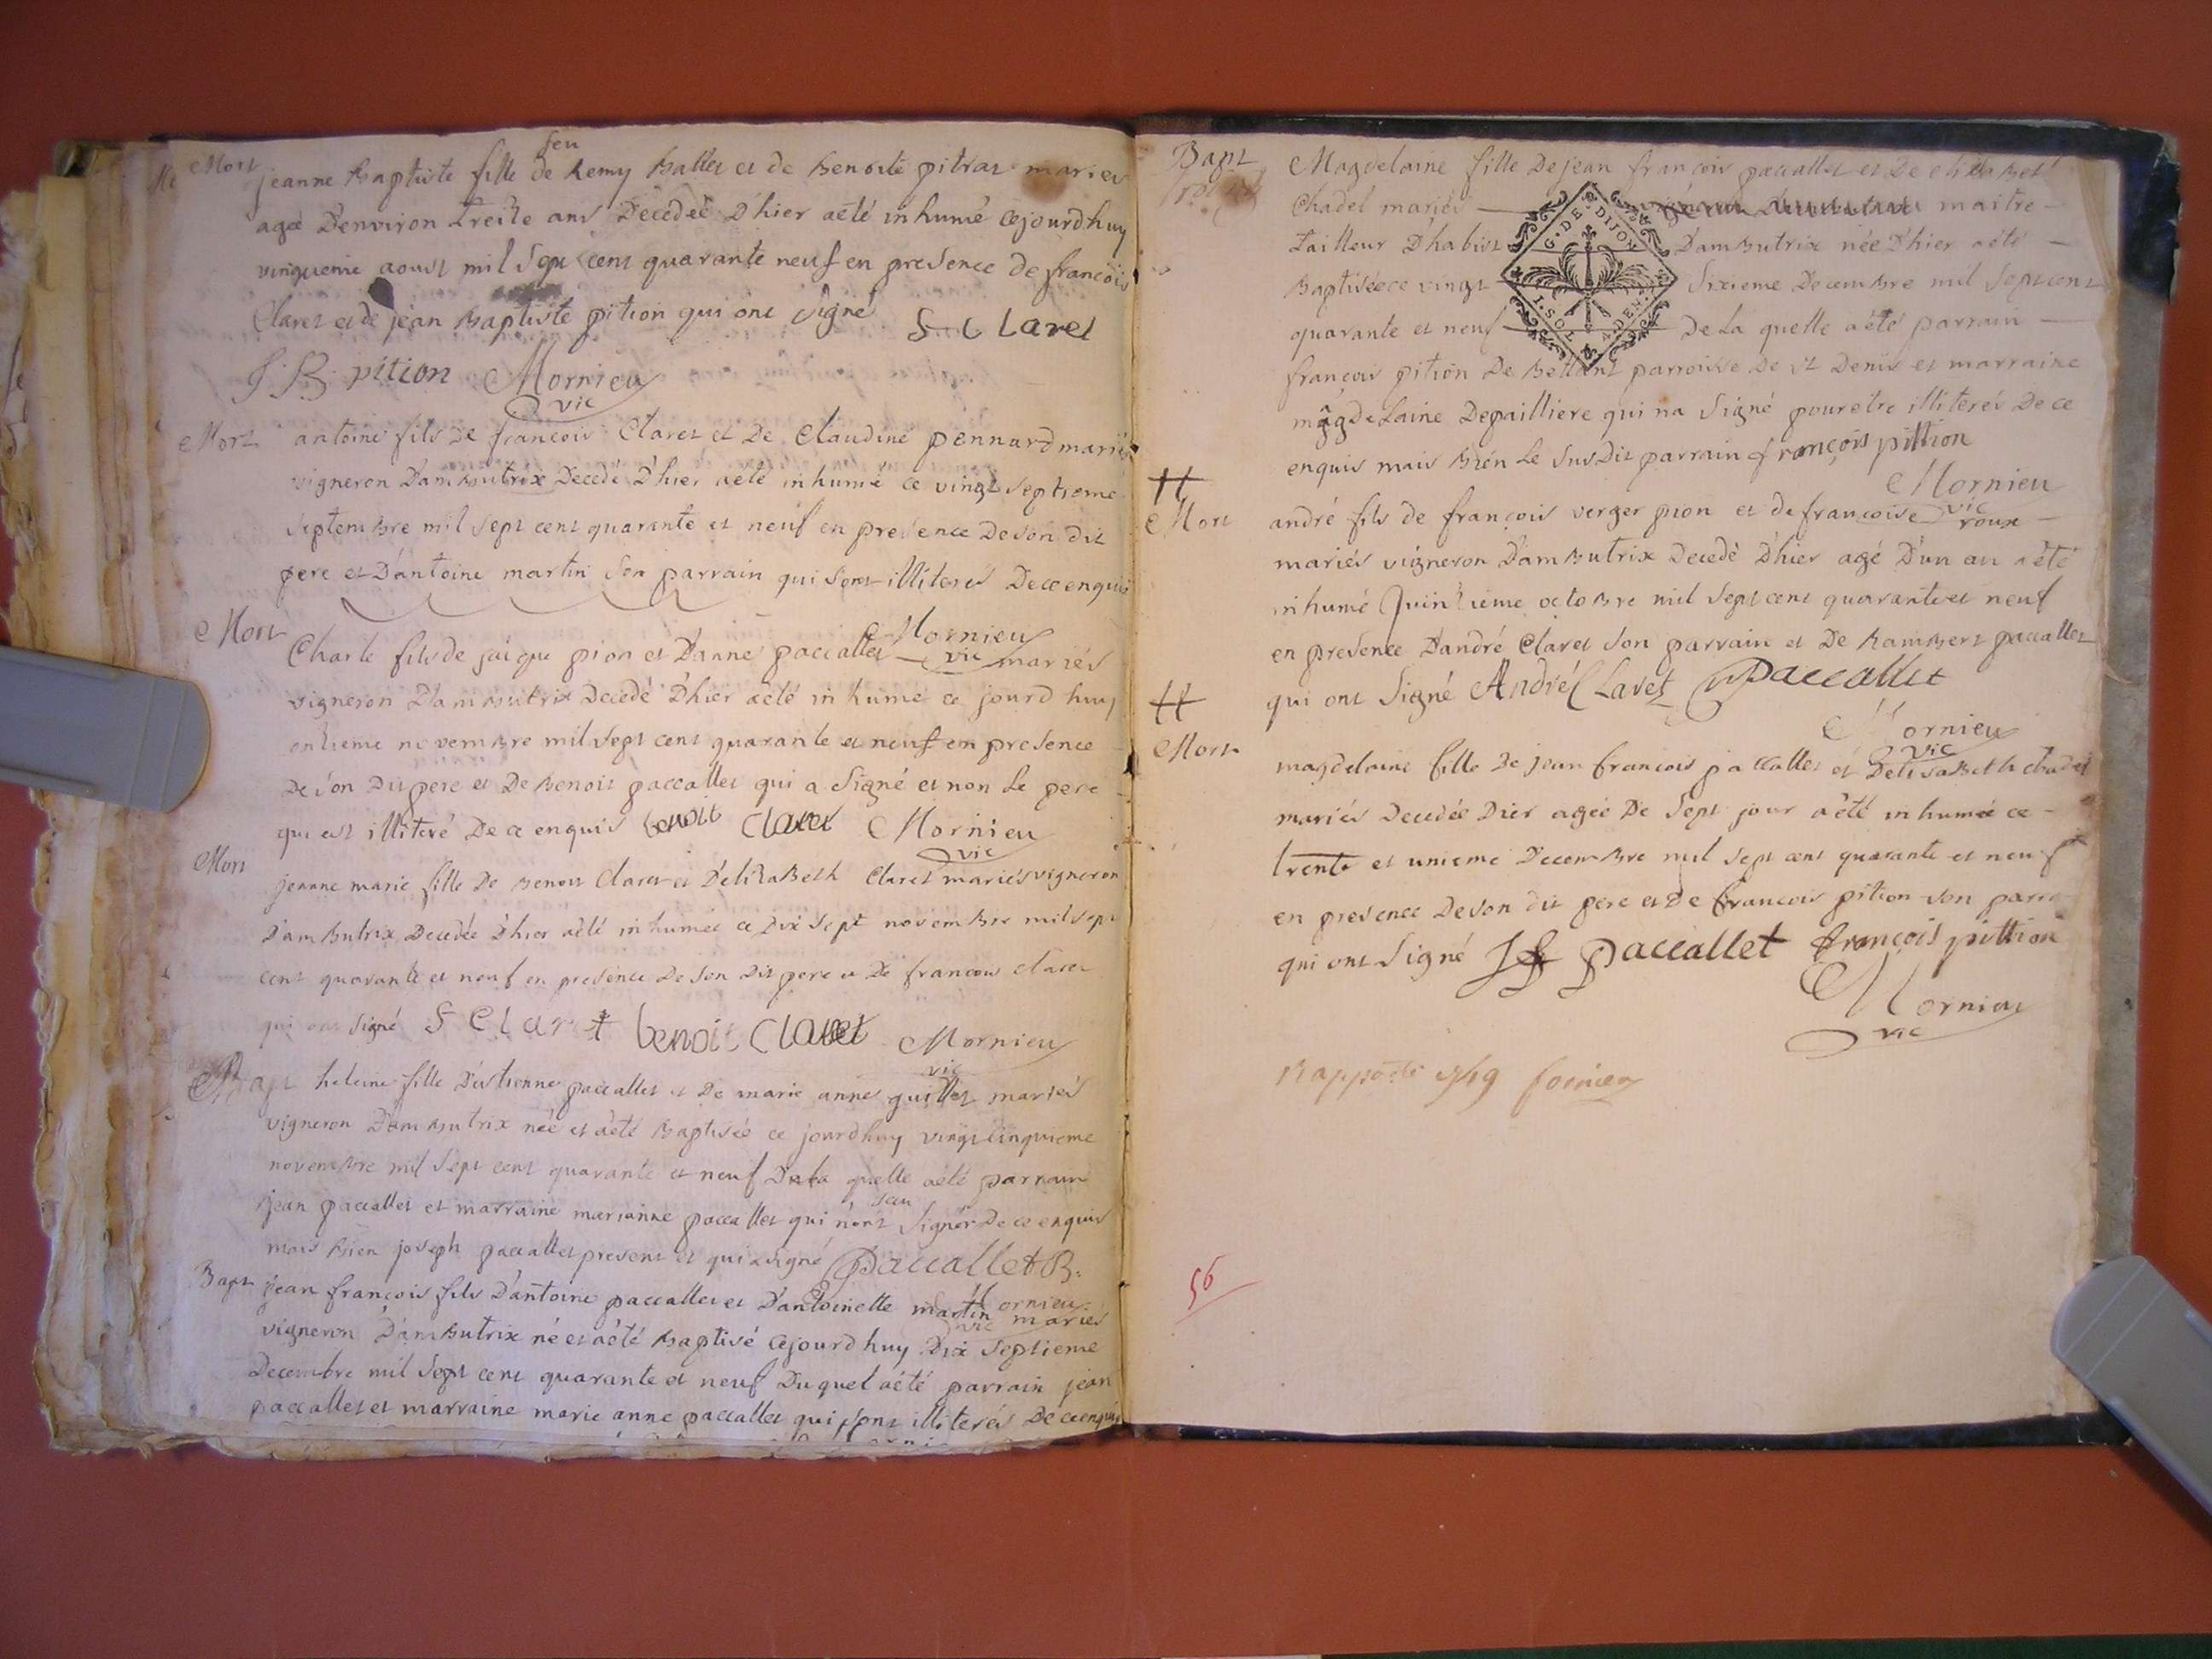 Mort
feu
jeanne Baptiste fille de Remy Ballet et de Benoite pitrat mariés
ageé D'environ treize ans Decedeé D'hier aeté inhumé cejourdhuy
vingtieme aoust mil sept cent quarante neuf en presence de françois
Claret et de jean Baptiste pition qui ont signé F Claret
J. B. pition Mornieu
vic
Mort antoine fils De françois Claret et De Claudine pennard mariés
vigneron D'amButrix Decedé D'hier aeté inhumé ce vingt septieme
septemBre mil sept cent quarante et neuf en presence De son dit
pere et D'antoine martin son parrain qui sont illiterés De ce enquis
Mornieu
vic
Mort Charle fils de jaique pion et D'anne paccallet mariés
vigneron D'amButrix Decedé D'hier aeté inhumé ce jourd huy
onzieme novemBre mil sept cent quarante et neuf en presence
De son Dit pere et De Benoit paccallet qui a signé et non le pere
qui est illiteré De ce enquis benoit Claret Mornieu
vic
Mort jeanne marie fille De Benoit Claret et D'elizaBeth Claret mariés vigneron
D'amButrix Decedée D'hier aété inhumée ce Dix sept novemBre mil sept
cent quarante et neuf en presence De son Dit pere et De francois claret
qui ont signé F Claret benoit Claret Mornieu
vic
Bapt heleine fille D'estienne paccallet et De marie anne guillet mariés
vigneron D'amButrix née et aeté Baptisée ce jourdhuy vingtcinquieme
novemBre mil sept cent quarante et neuf De la quelle aété parrain
jean paccallet et marraine marianne paccallet qui n'ont sceu signer De ce enquis
mais Bien joseph paccallet present et qui a signé Paccallet B.
Mornieu
vic
Bapt jean françois fils D'antoine paccallet et D'antoinette martin mariés
vigneron D'amButrix né et aété Baptisé cejourd huy Dix septieme
Decembre mil sept cent quarante et neuf Du quel aété parrain jean
paccallet et marraine marie anne paccallet qui sont illiterés De ce enquis
Bapt Magdelaine fille De jean françois paccallet et De elizaBet
Chadel mariés maitre
tailleur D'habist D'amButrix née D'hier aété
Baptiséece vingt sixieme DecemBre mil septcent
quarante et neuf De la quelle aété parrain
G. DE. DIJON
1. SOL 4. DEN.
françois pition De Bettant parroisse De st Denis et marraine
magdelaine Depailliere qui na signé pour etre illiterés De ce
enquis mais Bien le susDit parrain françois pittion
Mornieu
vic
Mort andré fils de françois verger pion et de francoise roux
mariés vigneron D'amButrix Decedé D'hier agé D'un an aété
inhumé Quinzieme octoBre mil sept cent quarante et neuf
en presence D'andré Claret son parrain et De RamBert paccallet
qui ont signé André Claret Paccallet
Mornieu
vic
Mort magdelaine fille De jean francois paccallet et D'elisaBeth chadel
mariés Decedée Dier ageé De sept jour aété inhumée ce
trente et unieme DecemBre mil sept cent quarante et neuf
en presence De son dit pere et De francois pition son parra
qui ont signé J f Paccallet françois pittion
Mornieu
vic
Rapporté
56